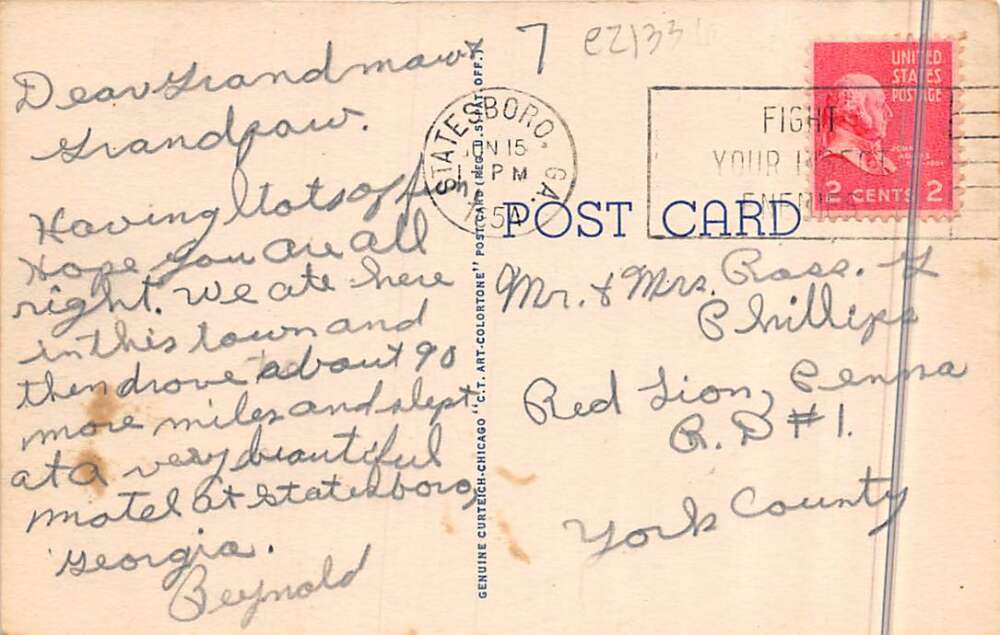 Dear Grandmaw &
Grandpaw.
Having lots of fun
Hope you are all
right. We ate here
in this town and
then drove about 90
more miles and slept
at a very beautiful
motel at Statesboro,
Georgia.
Reynold
GENUINE CURTEICH-CHICAGO "C.T. ART-COLORTONE" POST CARD (REG. U.S. PAT. OFF.)
7
CZ133
STATESBORO, GA.
JUN 15
PM
1954
FIGHT
YOUR
ENEMIE
UNITED
STATES
POSTAGE
JOHN
ADAMS
2 CENTS 2
POST CARD
Mr. & Mrs. Ross. H
Phillips
Red Lion, Penna
R.D #1.
York County